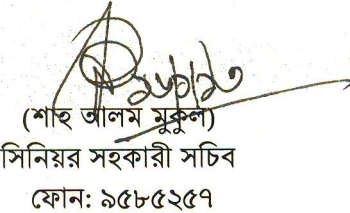 (শাহ আলম মুকুল)
সিনিয়র সহকারী সচিব
ফোন: ৯৫৮৫২৫৭